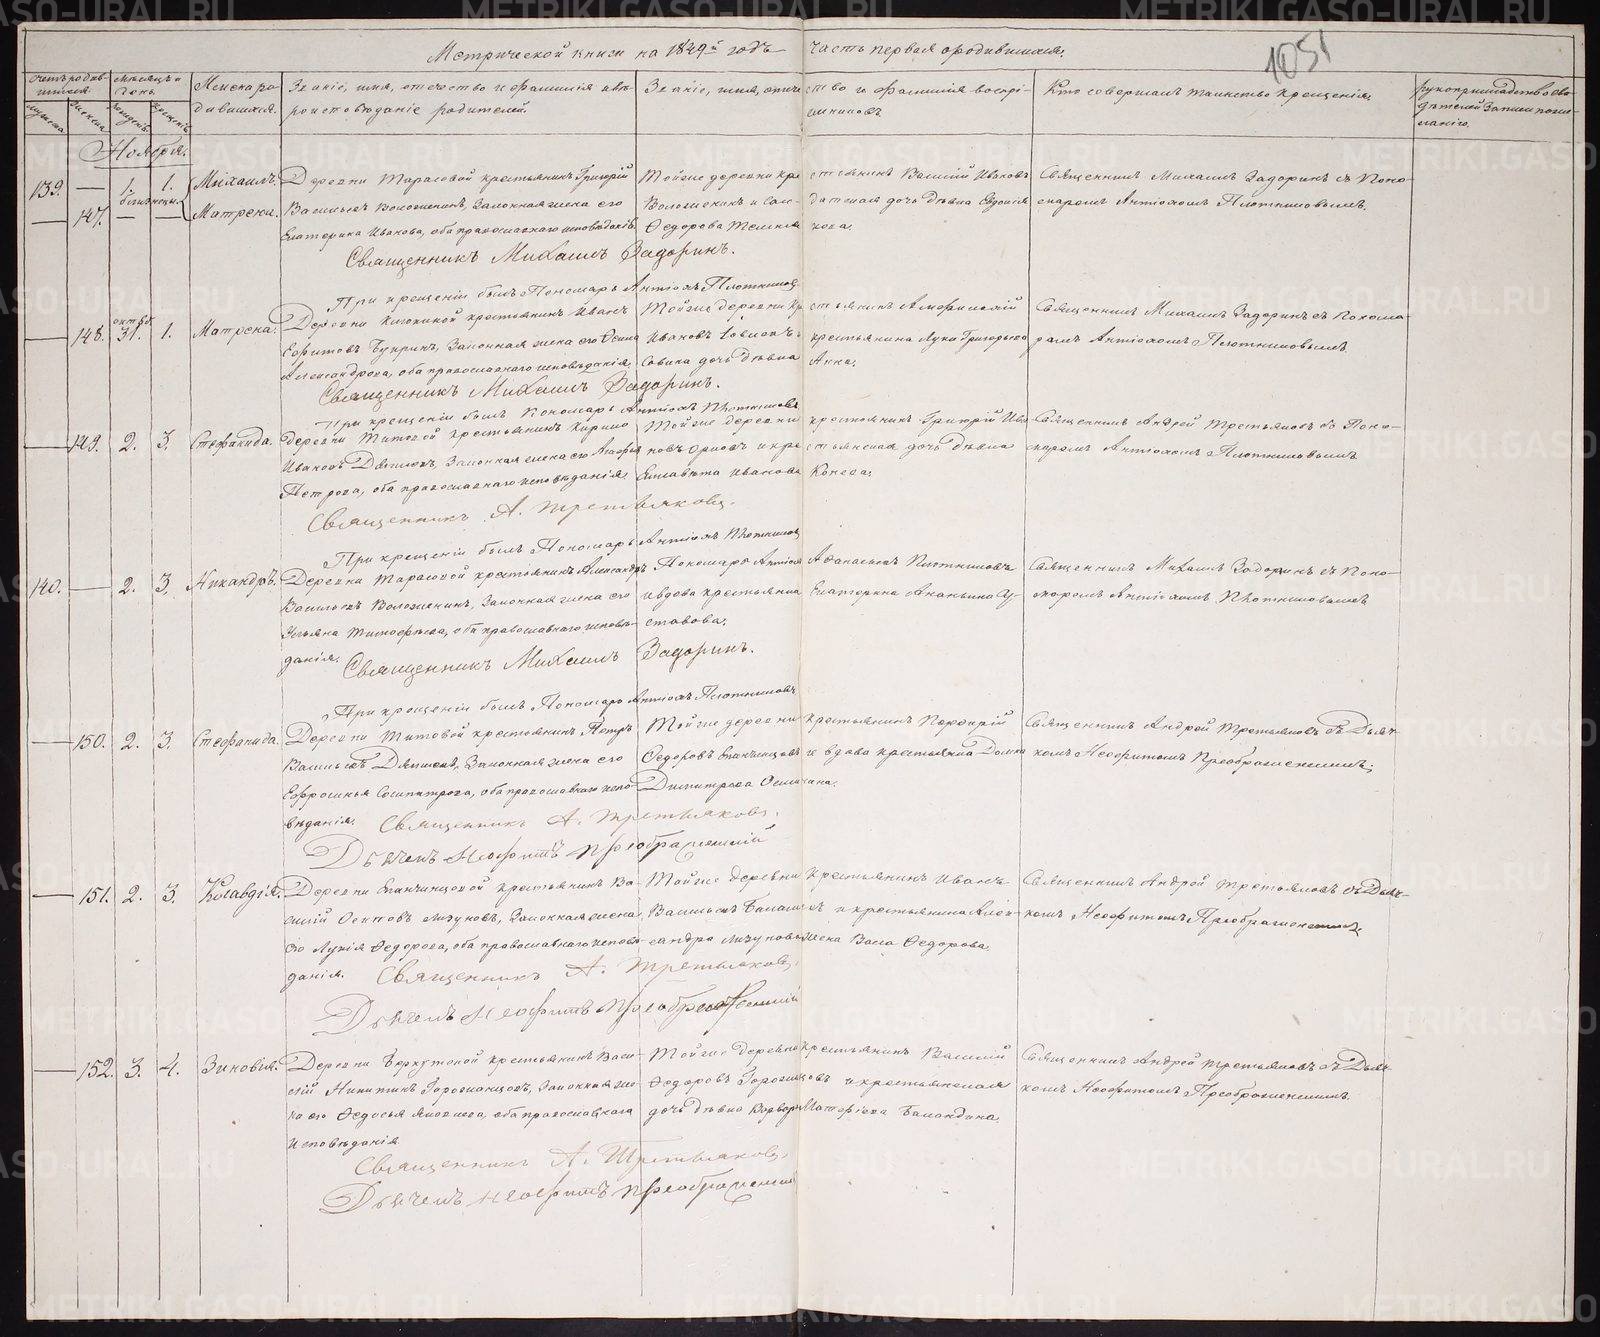 Метрической книги на 1849й годъ часть первая о родившихся.
1051
Счетъ родившихся.
Мужеска
Женска
Мѣсяцъ и день.
рожденія
крещенія
Имена родившихся.
Званіе, имя, отечество и фамилія и какого вѣроисповѣданіе родителей.
Званіе, имя, отечество и фамилія воспріемниковъ
Кто совершалъ таинство крещенія.
рукоприкладство свидѣтелей записи по желанію.
Ноября.
139. — 1. 1. Михаилъ.
— 147. близнецы. Матрена.
Деревни Тарасовой крестьянинъ Григорій
Васильевъ Воложенинъ, Законная жена его
Екатерина Иванова, оба православнаго исповѣданія.
Тойже деревни крестьянинъ Василій Ивановъ
Воложенинъ и солдатская дочь дѣвка Евдокія
Федорова
Священникъ Михаилъ Задоринъ съ Понамаремъ Антіохомъ Плотниковымъ.
Священникъ Михаилъ Задоринъ.
При крещеніи былъ Пономарь Антіохъ Плотниковъ
— 148. октяб. 31. 1. Матрена.
Деревни крестьянинъ Иванъ
Законная жена его
Александрова, оба православнаго исповѣданія.
Тойже деревни крестьянинъ
Ивановъ крестьянина Луки Григорьева
дочь дѣвка Анна.
Священникъ Михаилъ Задоринъ съ Понамаремъ Антіохомъ Плотниковымъ.
Священникъ Михаилъ Задоринъ.
При крещеніи былъ Пономарь Антіохъ Плотниковъ
— 149. 2. 3. Стефанида.
Деревни Титовой крестьянинъ Кирило
Ивановъ Законная жена его Агафья
Петрова, оба православнаго исповѣданія.
Тойже деревни крестьянинъ Григорій Ивановъ Орловъ и крестьянская дочь дѣвка
Елисавета Иванова
Священникъ Андрей Третьяковъ съ Пономаремъ Антіохомъ Плотниковымъ
Священникъ А. Третьяковъ.
При крещеніи былъ Пономарь Антіохъ Плотниковъ
140. — 2. 3. Никандръ.
Деревни Тарасовой крестьянинъ Александръ
Васильевъ Воложенинъ, Законная жена его
Ульяна Тимофѣева, оба православнаго исповѣданія.
Пономарь Антіохъ Афанасьевъ Плотниковъ
и вдова крестьянка Екатерина Ананьина Устовова.
Священникъ Михаилъ Задоринъ съ Пономаремъ Антіохомъ Плотниковымъ
Священникъ Михаилъ Задоринъ.
При крещеніи былъ Пономарь Антіохъ Плотниковъ
— 150. 2. 3. Стефанида.
Деревни Титовой крестьянинъ Петръ
Васильевъ Законная жена его
Ефросинья Сосипатрова, оба православнаго исповѣданія.
Тойже деревни крестьянинъ Порфирій
Федоровъ Епанчинцовъ и вдова крестьянка Домна
Димитрева
Священникъ Андрей Третьяковъ съ Дьячкомъ Неофитомъ Преображенскимъ.
Священникъ А. Третьяковъ.
Дьячекъ Неофитъ Преображенскій
— 151. 2. 3. Клавдія.
Деревни Епанчинцовой крестьянинъ Василій Осиповъ Мизуновъ, Законная жена
его Лукія Федорова, оба православнаго исповѣданія.
Тойже деревни крестьянинъ Иванъ
Васильевъ и крестьянина Александра Мизунова жена Васса Федорова.
Священникъ Андрей Третьяковъ съ Дьячкомъ Неофитомъ Преображенскимъ.
Священникъ А. Третьяковъ.
Дьячекъ Неофитъ Преображенскій
— 152. 3. 4. Зиновія.
Деревни Беркутской крестьянинъ Василій Никитинъ Законная жена его Федосья Яковлева, оба православнаго
исповѣданія.
Тойже деревни крестьянинъ Василій
Федоровъ и крестьянская
дочь дѣвка Варвара Баландина.
Священникъ Андрей Третьяковъ съ Дьячкомъ Неофитомъ Преображенскимъ.
Священникъ А. Третьяковъ.
Дьячекъ Неофитъ Преображенскій